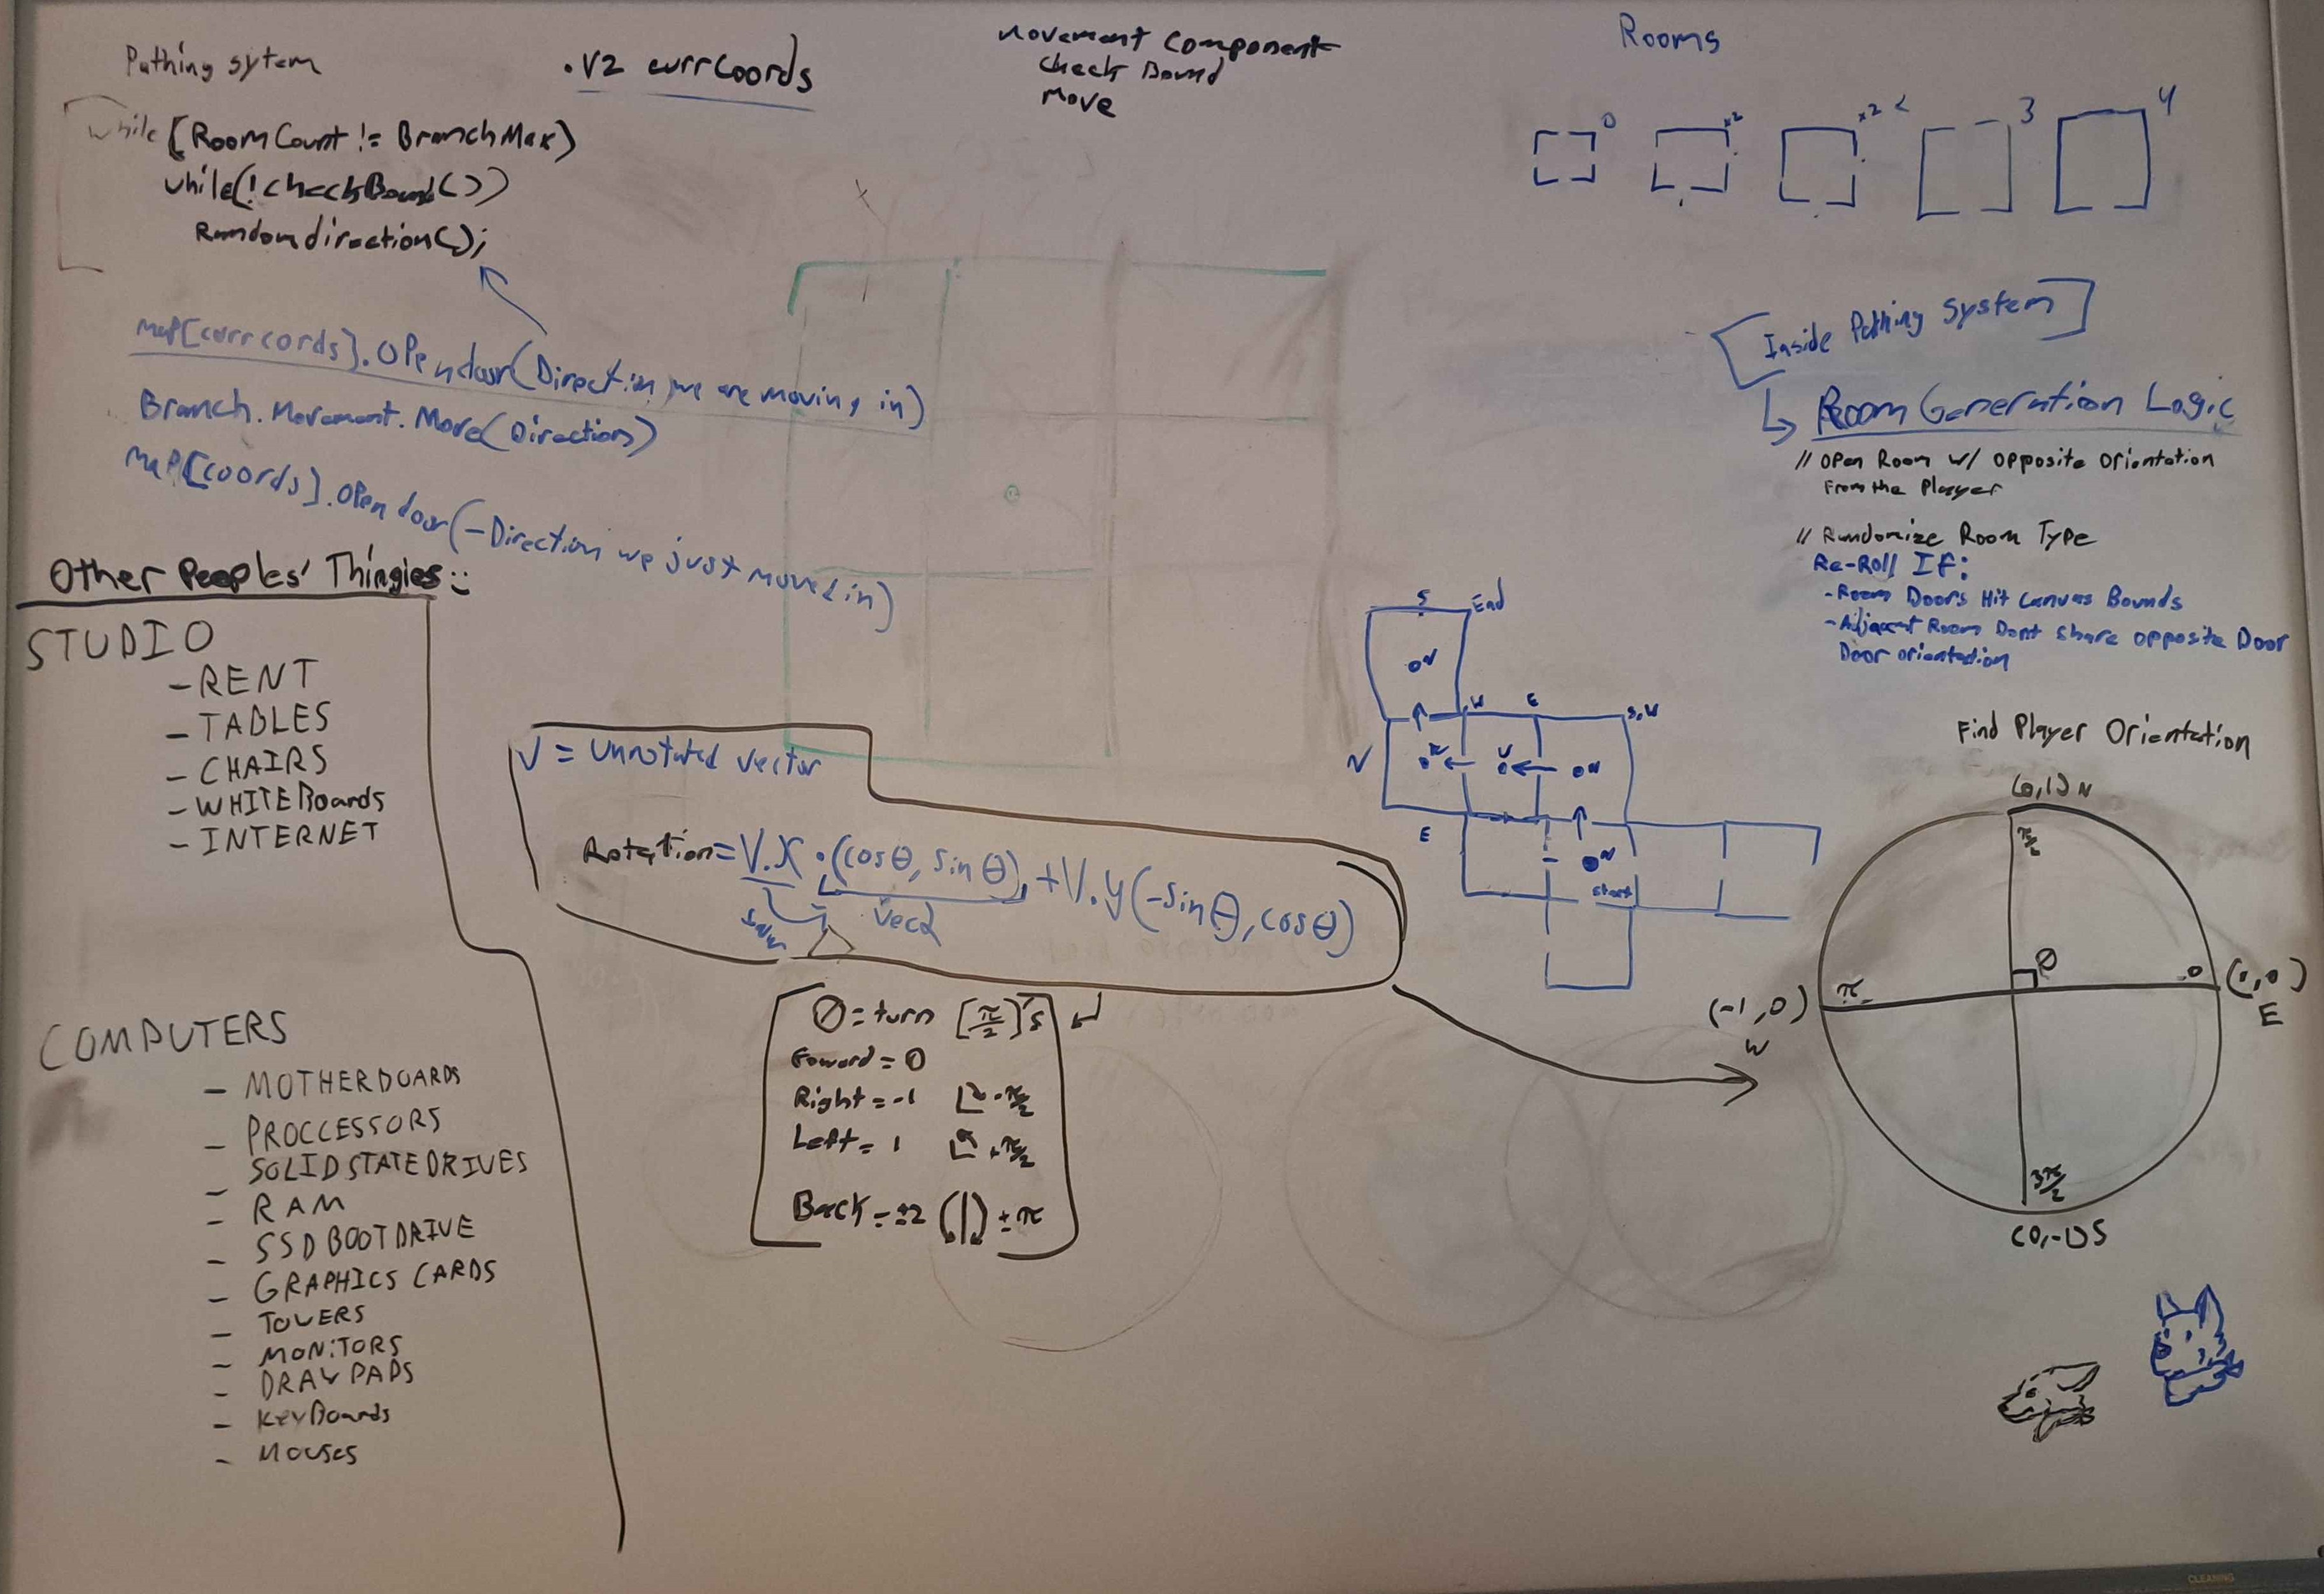 Pathing sytem
while (RoomCount != BranchMax)
while(!checkBound())
Randomdirection();
.V2 currcoords
Movement Component
Check Bound
Move
Rooms
0
x2
x2
3
4
map[currcords].Opendoor(Direction we are moving in)
Branch.Movement.Move(Direction)
map[coords].Opendoor(-Direction we just moved in)
[Inside Pathing System]
Room Generation Logic
// Open Room w/ Opposite Orientation
From the Player
// Randomize Room Type
Re-Roll If:
-Room Doors Hit Canvas Bounds
-Adjacent Room Dont Share opposite Door
Door orientation
Other Peoples' Thingies
STUDIO
-RENT
- TABLES
- CHAIRS
- WHITEBoards
- INTERNET
COMPUTERS
- MOTHERBOARDS
- PROCCESSORS
- SOLID STATE DRIVES
- RAM
- SSD BOOT DRIVE
- GRAPHICS CARDS
- TOWERS
- MONiTORS
- DRAW PADS
- KeyBoards
- Mouses
V = Unrotated Vector
Rotation = V.X . (cosθ, sinθ) + V.y(-sinθ, cosθ)
Vec2
Ø = turn [π/2]'s
Foward = 0
Right = -1 -π/2
Left = 1 +π/2
Back = ±2 ±π
S End
N
W E S,W
N
N
E
N
start
Find Player Orientation
(0,1) N
π/2
Ø
π
0
(-1,0)
W
E
3π/2
(0,-1) S
CLEANING